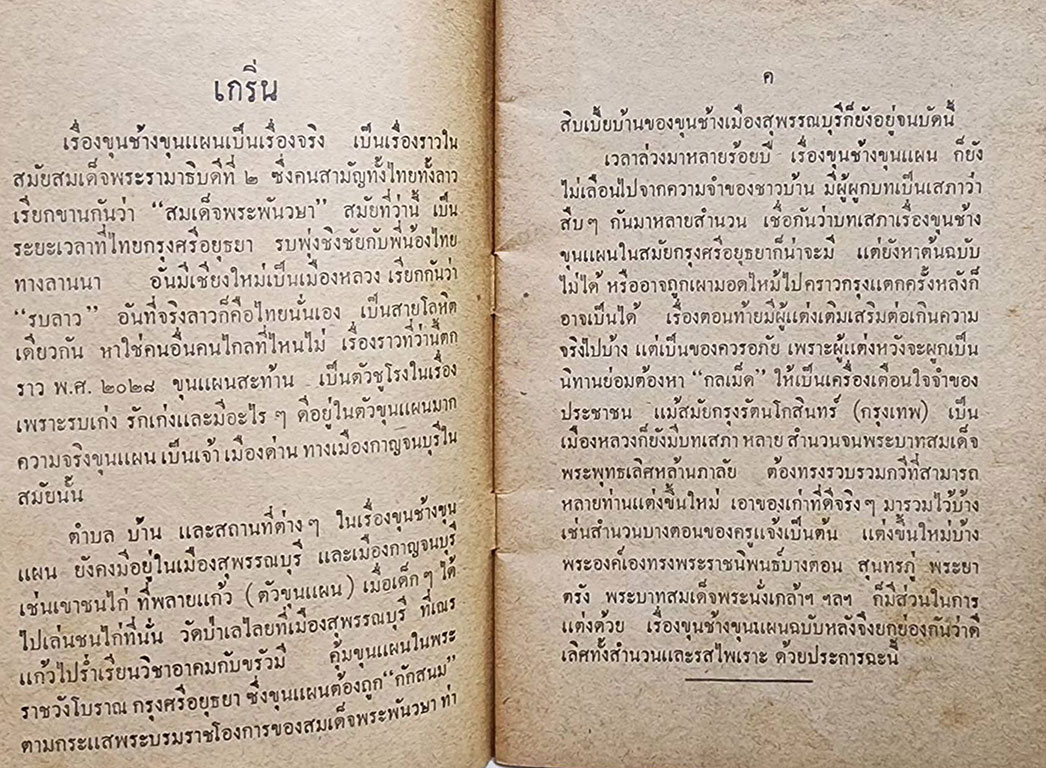 เกริ่น
เรื่องขุนช้างขุนแผนเป็นเรื่องจริง เป็นเรื่องราวใน
สมัยสมเด็จพระรามาธิบดีที่ ๒ ซึ่งคนสามัญทั้งไทยทั้งลาว
เรียกขานกันว่า “สมเด็จพระพันวษา” สมัยที่ว่านี้ เป็น
ระยะเวลาที่ไทยกรุงศรีอยุธยา รบพุ่งชิงชัยกับพี่น้องไทย
ทางลานนา อันมีเชียงใหม่เป็นเมืองหลวง เรียกกันว่า
“รบลาว” อันที่จริงลาวก็คือไทยนั่นเอง เป็นสายโลหิต
เดียวกัน หาใช่คนอื่นคนไกลที่ไหนไม่ เรื่องราวที่ว่านี้ตก
ราว พ.ศ. ๒๐๒๘ ขุนแผนสะท้าน เป็นตัวชูโรงในเรื่อง
เพราะรบเก่ง รักเก่งและมีอะไร ๆ ดีอยู่ในตัวขุนแผนมาก
ความจริงขุนแผน เป็นเจ้า เมืองด่าน ทางเมืองกาญจนบุรีใน
สมัยนั้น
ตำบล บ้าน และสถานที่ต่าง ๆ ในเรื่องขุนช้างขุน
แผน ยังคงมีอยู่ในเมืองสุพรรณบุรี และเมืองกาญจนบุรี
เช่นเขาชนไก่ ที่พลายแก้ว (ตัวขุนแผน) เมื่อเด็ก ๆ ได้
ไปเล่นชนไก่ที่นั่น วัดป่าเลไลยที่เมืองสุพรรณบุรี ที่เณร
แก้วไปร่ำเรียนวิชาอาคมกับขรัวมี คุ้มขุนแผนในพระ
ราชวังโบราณ กรุงศรีอยุธยา ซึ่งขุนแผนต้องถูก “กักสนม”
ตามกระแสพระบรมราชโองการของสมเด็จพระพันวษา ท่า
ค
สิบเบี้ยบ้านของขุนช้างเมืองสุพรรณบุรีก็ยังอยู่จนบัดนี้
เวลาล่วงมาหลายร้อยปี เรื่องขุนช้างขุนแผน ก็ยัง
ไม่เลือนไปจากความจำของชาวบ้าน มีผู้ผูกบทเป็นเสภาว่า
สืบ ๆ กันมาหลายสำนวน เชื่อกันว่าบทเสภาเรื่องขุนช้าง
ขุนแผนในสมัยกรุงศรีอยุธยาก็น่าจะมี แต่ยังหาต้นฉบับ
ไม่ได้ หรืออาจถูกเผามอดไหม้ไป คราวกรุงแตกครั้งหลังก็
อาจเป็นได้ เรื่องตอนท้ายมีผู้แต่งเติมเสริมต่อเกินความ
จริงไปบ้าง แต่เป็นของควรอภัย เพราะผู้แต่งหวังจะผูกเป็น
นิทานย่อมต้องหา “กลเม็ด” ให้เป็นเครื่องเตือนใจจำของ
ประชาชน แม้สมัยกรุงรัตนโกสินทร์ (กรุงเทพ) เป็น
เมืองหลวงก็ยังมีบทเสภา หลาย สำนวนจนพระบาทสมเด็จ
พระพุทธเลิศหล้านภาลัย ต้องทรงรวบรวมกวีที่สามารถ
หลายท่านแต่งขึ้นใหม่ เอาของเก่าที่ดีจริง ๆ มารวมไว้บ้าง
เช่นสำนวนบางตอนของครูแจ้งเป็นต้น แต่งขึ้นใหม่บ้าง
พระองค์เองทรงพระราชนิพนธ์บางตอน สุนทรภู่ พระยา
ตรัง พระบาทสมเด็จพระนั่งเกล้าฯ ฯลฯ ก็มีส่วนในการ
แต่งด้วย เรื่องขุนช้างขุนแผนฉบับหลังจึงยกย่องกันว่าดี
เลิศทั้งสำนวนและรสไพเราะ ด้วยประการฉะนี้